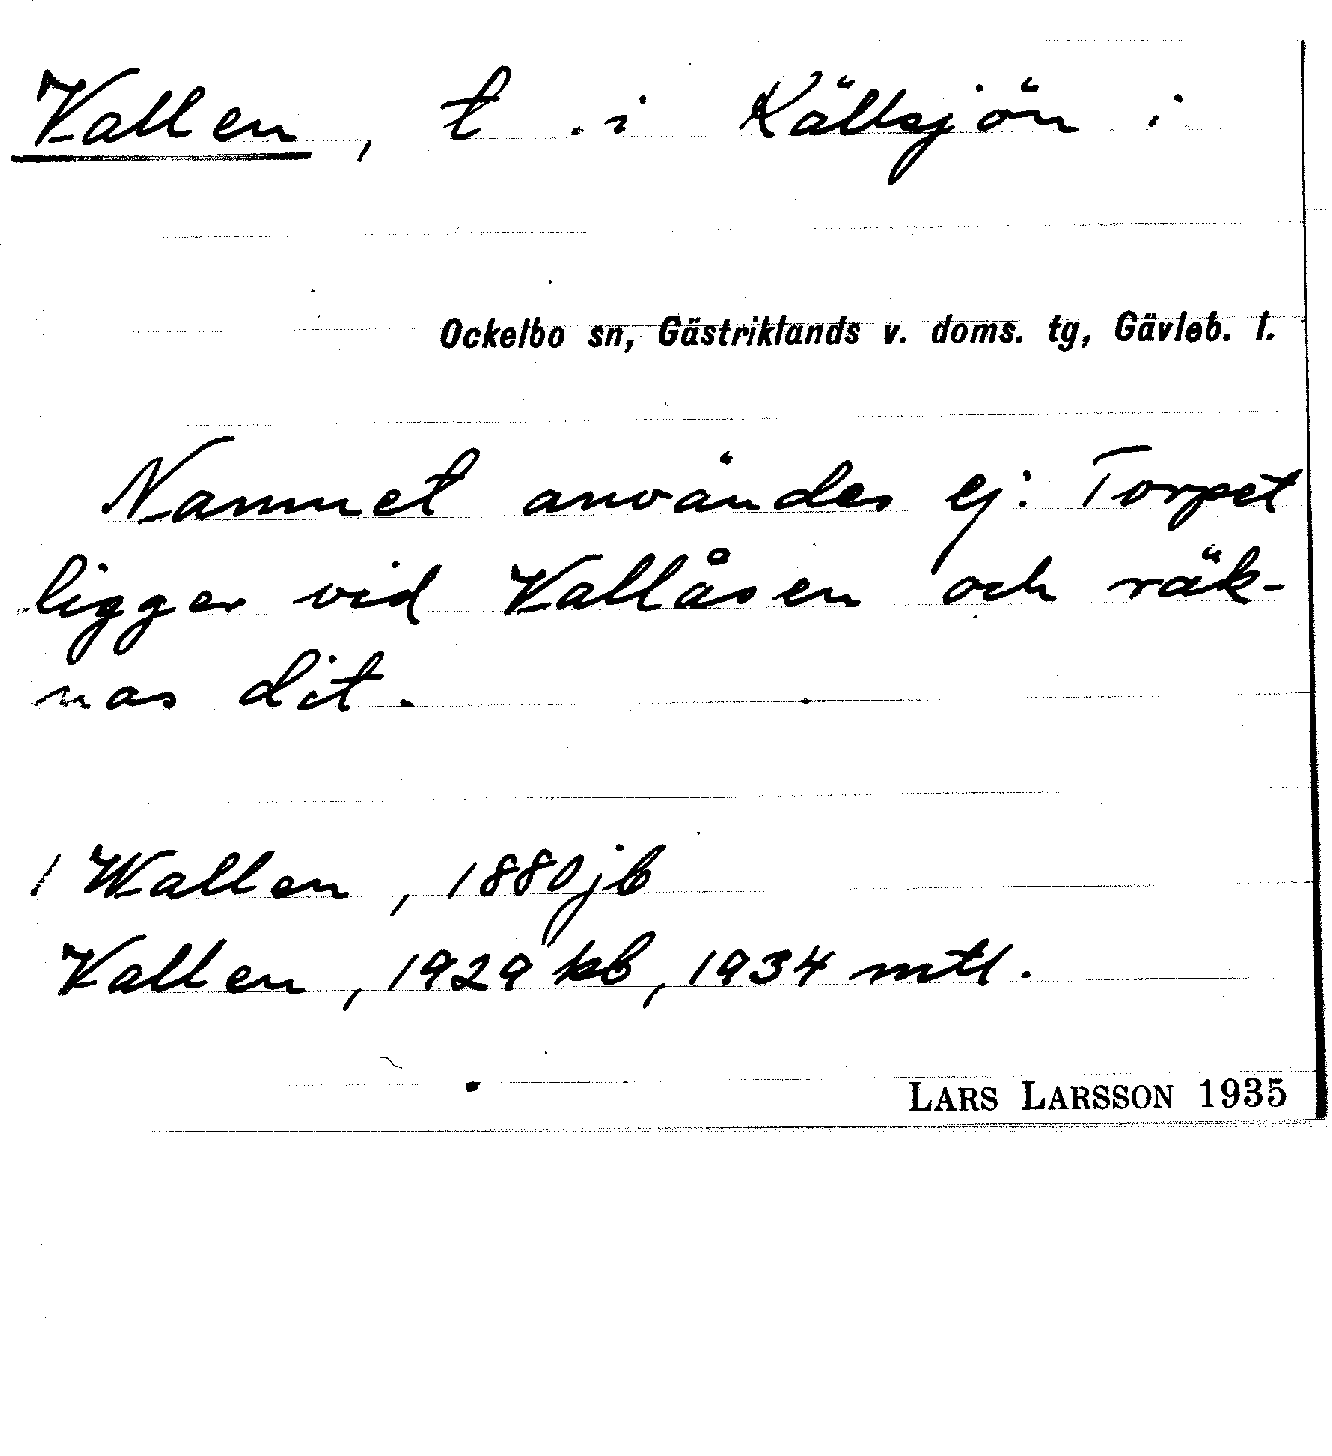 Vallen, t. i Källsjön i
Ockelbo sn, Gästriklands v. doms. tg, Gävleb. l.
Namnet användes ej. Torpet
ligger vid Vallåsen och räk-
nas dit.
/ Wallen, 1880 jb
Vallen, 1929 kb, 1934 mtl.
LARS LARSSON 1935